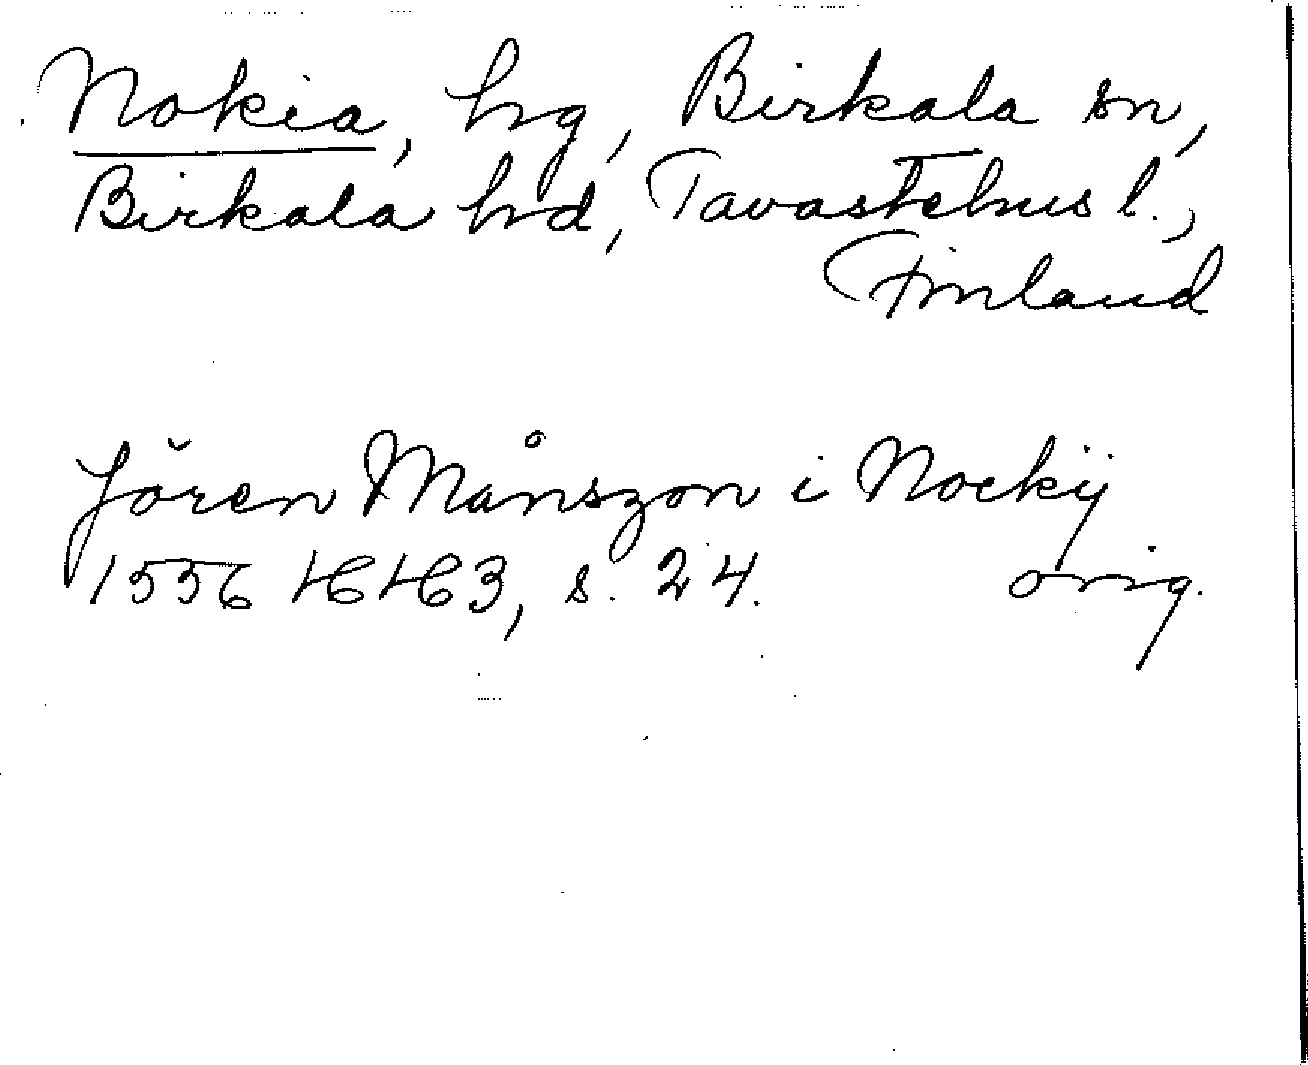 Nokia, hg, Birkala sn,
Birkala hd, Tavastehus l.,
Finland
Jören Månszon i Nockÿ
1556 HH 3, s. 24. orig.